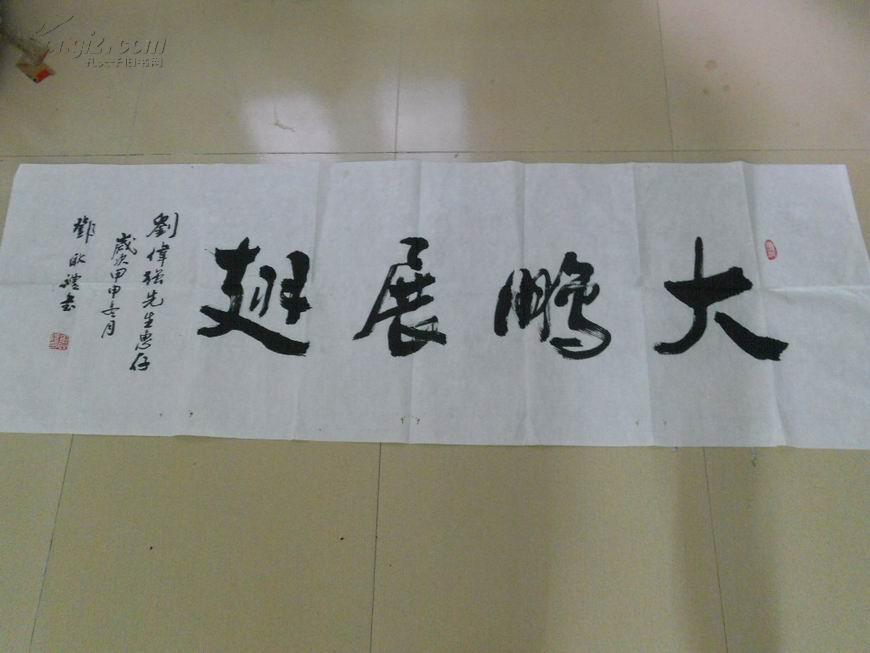 大鵬展翅
劉偉強先生惠存
歲次甲申冬月
鄧書
kongfz.com
孔夫子旧书网